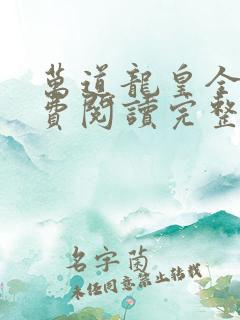 萬道龍皇全
費閱讀完整
名字茵
未經同意禁止轉載